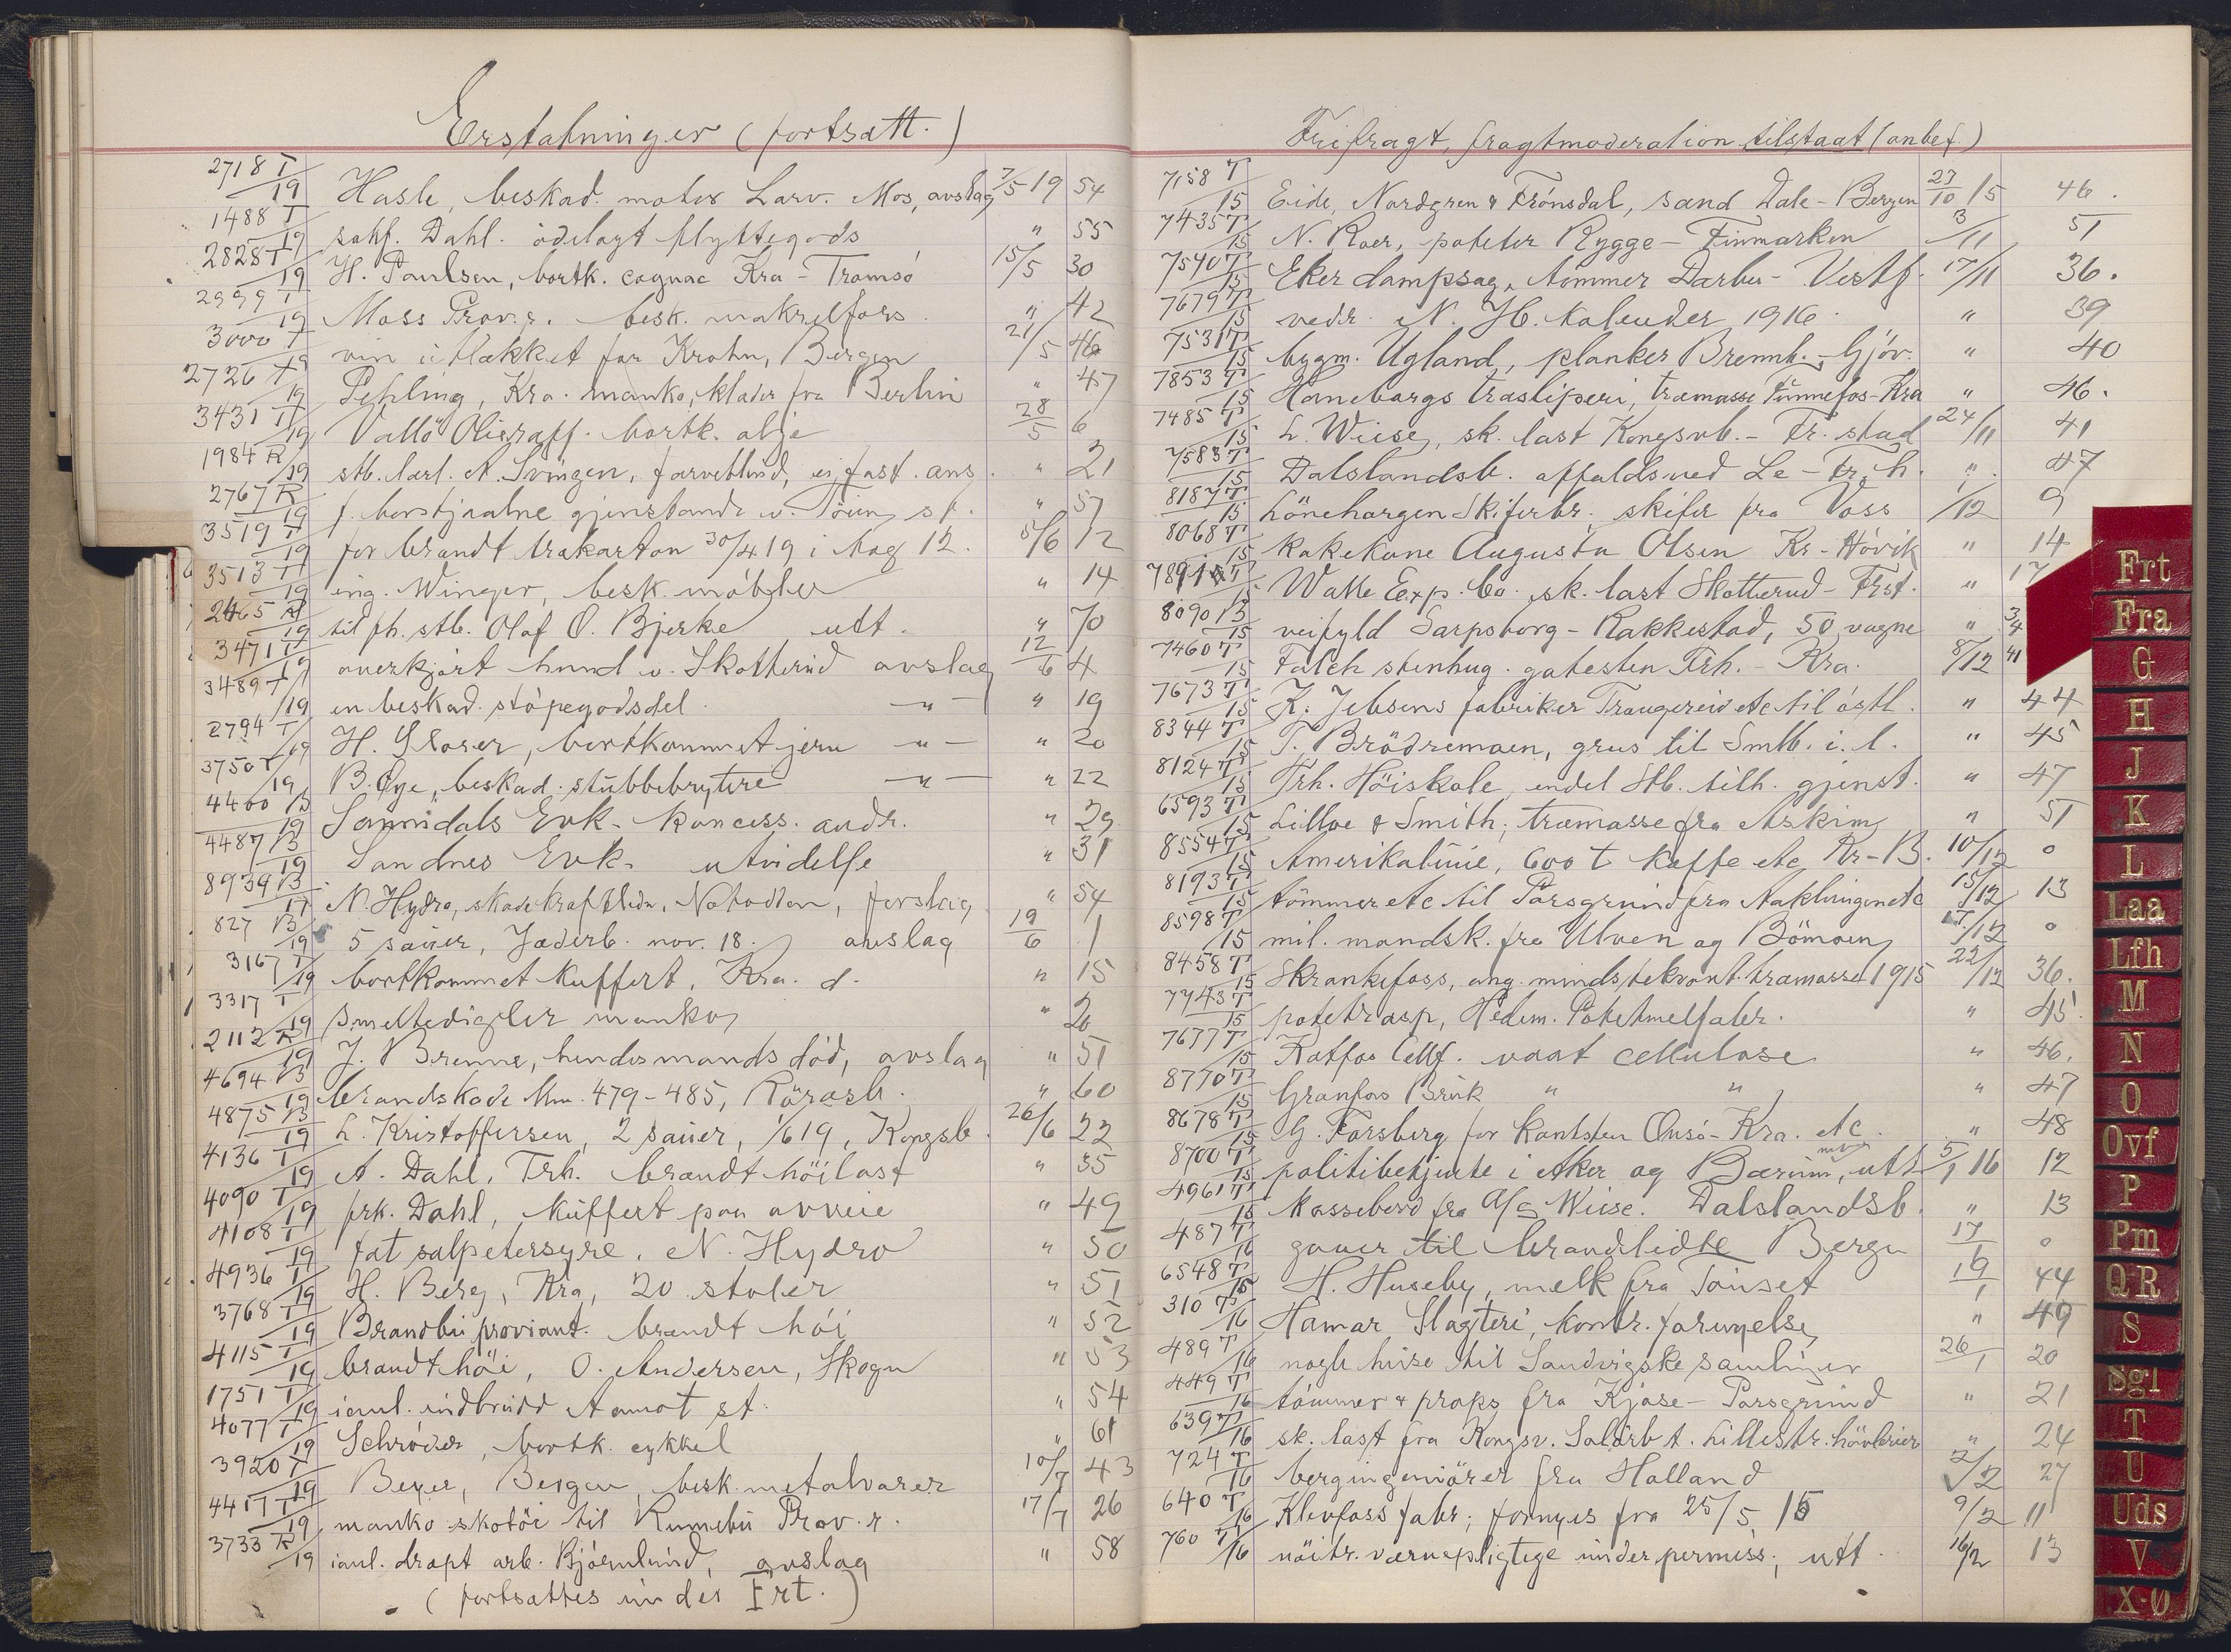 Erstatninger (fortsatt.)
2718 T/19 Hasle, beskad. motor Larv. Mos, avslag 7/5 19 54
1488 T/19 sakf. Dahl. ödelagt flyttegods " 55
2828 T/19 H. Paulsen, bortk. cognac Kra - Tromsö 15/5 30
2999 T/19 Moss Prov.r. besk. makrelfors. " 42
3000 T/19 vin utlækket for Krohn, Bergen 21/5 46
2726 T/19 Pehling, Kra. manko, klæder fra Berlin " 47
3431 T/19 Vallö Olieraff. bortk. olje 28/5 6
1984 R/19 stb. lærl. N. Svingen, farveblind, ei fast. ans. " 21
2767 R/19 f. borstjaalne gjenstande v. Töien st. " 57
3519 T/19 for brandt trakarton 30/4 19 i tog 12. 5/6 12
3513 T/19 ing. Winger, besk. möbler " 14
2465 R/19 til fh. stb. Olaf O. Bjerke utt. " 70
3471 T/19 overkjört hund v. Skotterud avslag 12/6 4
3489 T/19 en beskad. stöpegodsdel. — " — " 19
2794 T/19 H. Sloser, bortkommet jern — " — " 20
3750 T/19 B. Öye, beskad. stubbebrytere — " — " 22
4400 B/19 Sannidals Evk. koncess. andr. " 29
4487 B/19 Sandnes Evk. utvidelse " 31
8939 B/17 N. Hydro, skade kraftledn. Notodden, forslag " 54
827 B/19 5 sauer, Jæderb. nov. 18. avslag 19/6 1
3167 T/19 bortkommet kuffert, Kra. d. " 15
3317 T/19 smeltedigler manko, " 20
2112 R/19 J. Brenne, hendes mands död, avslag " 51
4694 B/19 brandskade km. 479-485, Rörosb. " 60
4875 B/19 L. Kristoffersen, 2 sauer, 1/6 19, Kongsb. 26/6 22
4136 T/19 A. Dahl, Trh. brandt höilast " 35
4090 T/19 frk. Dahl, kuffert paa avveie " 49
4108 T/19 fat salpetersyre, N. Hydro " 50
4936 T/19 H. Berg, Kra, 20 stoler " 51
3768 T/19 Brandbu proviant. brandt höi " 52
4115 T/19 brandt höi, O. Andersen, Skogn " 53
1751 T/19 ianl. indbrudd Aamot st. " 54
4077 T/19 Schröder, bortk. cykkel " 61
3920 T/19 Beyer, Bergen, besk. metalvarer 10/7 43
4417 T/19 manko skotöi til Rumebu Prov.r. 17/7 26
3733 R/19 ianl. dræpt arb. Björnlund, avslag " 58
(fortsættes under Frt.)
Frifragt, fragtmoderation tilstaat (anbef.)
7158 T/15 Eide, Nordgren & Frönsdal, sand Dale - Bergen 27/10 15 46.
7435 T/15 N. Roer, poteter Rygge - Finmarken 3/11 51
7540 T/15 Eker dampsag, tömmer Darbu - Vestf. 17/11 36.
7679 T/15 vedr. N. H. kalender 1916. " 39
7531 T/15 bygm. Ugland, planker Brennh. - Gjöv. " 40
7853 T/15 Haneborgs træsliperi, træmasse Tunnefos - Kra " 46.
7485 T/15 L. Wiese, sk. last Kongsvb. - Fr. stad 24/11 41
7583 T/15 Dalslandsb. affaldsved Le - Fr.h. " 47
8187 T/15 Lönehorgen Skiferbr. skifer fra Voss /12 9
8068 T/15 kakekone Augusta Olsen Kr - Hövik " 14
7891 T/15 Watte Exp. Co. sk. last Skotterud - Frst. " 17
8090 B/15 veifyld Sarpsborg - Rakkestad, 50 vogne " 34
7460 T/15 Falch stenhug. gatesten Frh. - Kra. 8/12 41
7673 T/15 K. Jebsens fabriker Traugereid etc til östl. " 44
8344 T/15 T. Brödremoen, grus til Smlb. i. l. " 45
8124 T/15 Trh. Höiskole, endel Stb. tilh. gjenst. " 47
6593 T/15 Lilloe & Smith, træmasse fra Askim " 51
8554 T/15 Amerikalinie, 600 t kaffe etc, Kr - B. 10/12 0
8193 T/15 tömmer etc til Porsgrund fra Naklingen etc 15/12 13
8598 T/15 mil. mandsk. fra Ulven og Bömoen /12 0
8458 T/15 Skrankefoss, ang. mindstekvant. træmasse 1915 22/12 36.
7743 T/15 potetrasp, Hedem. Potetmelfabr. " 45.
7677 T/15 Katfos Cellf. vaat cellulose " 46.
8770 T/15 Granfos Bruk " " " 47
8678 T/15 G. Forsberg for kantsten Onsö - Kra. etc. " 48
8700 T/15 politibetjente i Aker og Bærum, utt 5/1 16 12
4961 T/15 kassebord fra A/S Wiese. Dalslandsb. " 13
487 T/16 gaver til brandlidte Bergen 17/ 0
6548 T/15 H. Huseby, melk fra Tönset 19/1 44
310 T/16 Hamar Slagteri, kontr. fornyelse, " 49
489 T/16 nogle huse til Sandvigske samlinger 26/1 20
449 T/16 tömmer & props fra Kjose - Porsgrund " 21
639 T/16 sk. last fra Kongsv. Solörb t. Lillestr. hövlerier " 24
724 T/16 bergingeniörer fra Holland 2/2 27
640 T/16 Klevfoss fabr; fornyes fra 25/5 15 9/2 11
760 T/16 nöitr. værnepligtige under permiss., utt. 16/2 13
Frt
Fra
G
H
J
K
L
Laa
Lfh
M
N
O
Ovf
P
Pm
QR
S
Sgl
T
U
Uds
V
X-Ø